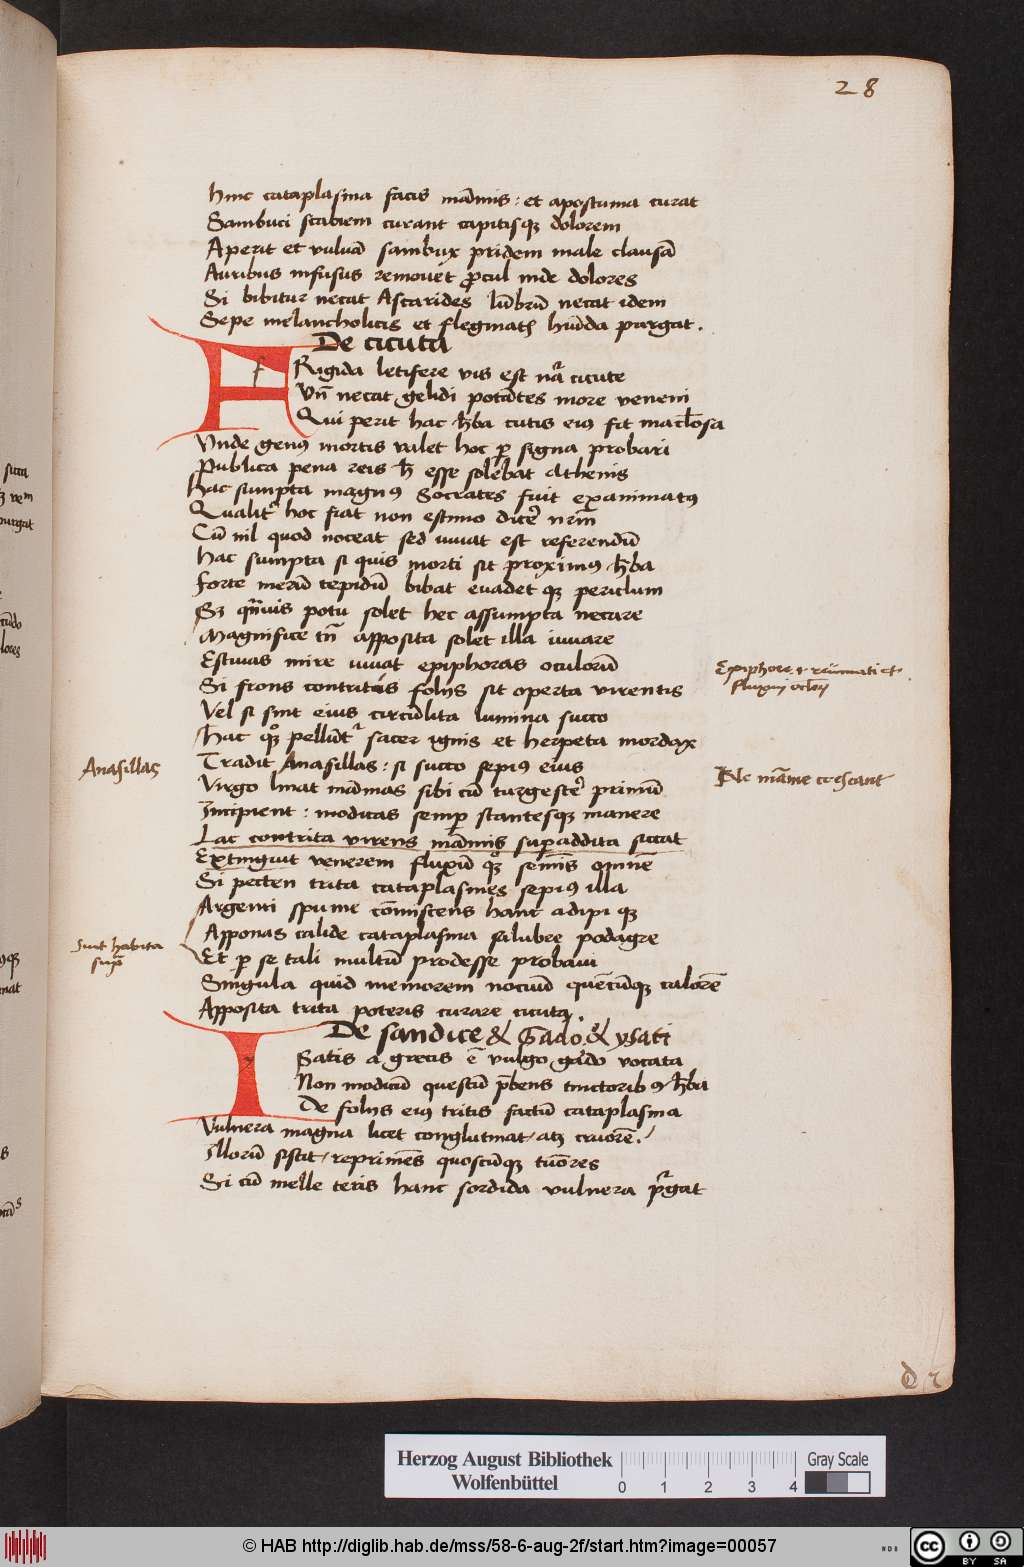 28
Hinc cataplasma facis mãmis : et apostuma curat
Sambuci scabiem curant capitisqꝫ dolorem
Aperit et vuluã sambux pridem male clausã
Auribus infusus remouet ꝓcul inde dolores
Si bibitur necat Ascarides lũbrũ necat idem
Sepe melancholicis et flegmatꝭ hũida purgat .
De cicuta
f
FRigida letifere vis est nãr cicute
Vñ necat gelidi potãtes more veneni
Qui perit hac hba cutis eiꝰ fit maclosa
Vnde genꝰ mortis valet hoc ꝑ signa probari
Publica pena reis h̄ esse solebat Athenis
Hac sumpta magnꝰ Socrates fuit exanimatꝰ
Qualitr hoc fiat non estimo dicer nrm̃
Cũ nil quod noceat sed iuuat est referendũ
Hac sumpta si quis morti sit proximꝰ hba
Forte merũ tepidũ bibat euadet qꝫ periclum
Sꝫ qñuis potu solet hec assumpta necare
Magnifice tñ apposita solet illa iuuare
Estiuas mire iuuat epiphoras oculorũ
Epiphore
Si frons contritis folijs sit operta virentis
Vel si sint eius circũlita lumina succo
Hac qꝫ pellũtr sacer ignis et herpeta mordax
Anasillas
Tradit Anasillas : si succo sepiꝰ eius
Virgo liniat mãmas sibi cũ turgescer primũ
Ne mãme crescant
Incipient : modicas semꝑ stantesqꝫ manere
Lac contrita virens mãmis supaddita siccat
Extinguit venerem fluxũ qꝫ semĩs omnẽ
Si pecten trita cataplasmes sepiꝰ illa
Argenti spume cõmiscens hanc adipi qꝫ
Apponas calide cataplasma salubre podagre
Sunt habita
supᵃ
Et ꝑ se tali multũ prodesse probaui
Singula quid memorem nociuũ quẽcũqꝫ calorẽ
Apposita trita poteris curare cicuta .
De sandice & Gado & ysati
y
YSatis a grecis ẽ vulgo gado vocata
Non modicũ questũ p̃bens tinctoribꝰ hba
De folijs eiꝰ tritis factũ cataplasma
Vulnera magna licet conglutinat / atqꝫ cruorẽ /
Illorũ sistit / reprimẽs quoscũqꝫ tũores
Si cũ melle teris hanc sordida vulnera prgat
d
Herzog August Bibliothek
Wolfenbüttel
0 1 2 3 4
Gray Scale
© HAB http://diglib.hab.de/mss/58-6-aug-2f/start.htm?image=00057
cc
BY SA